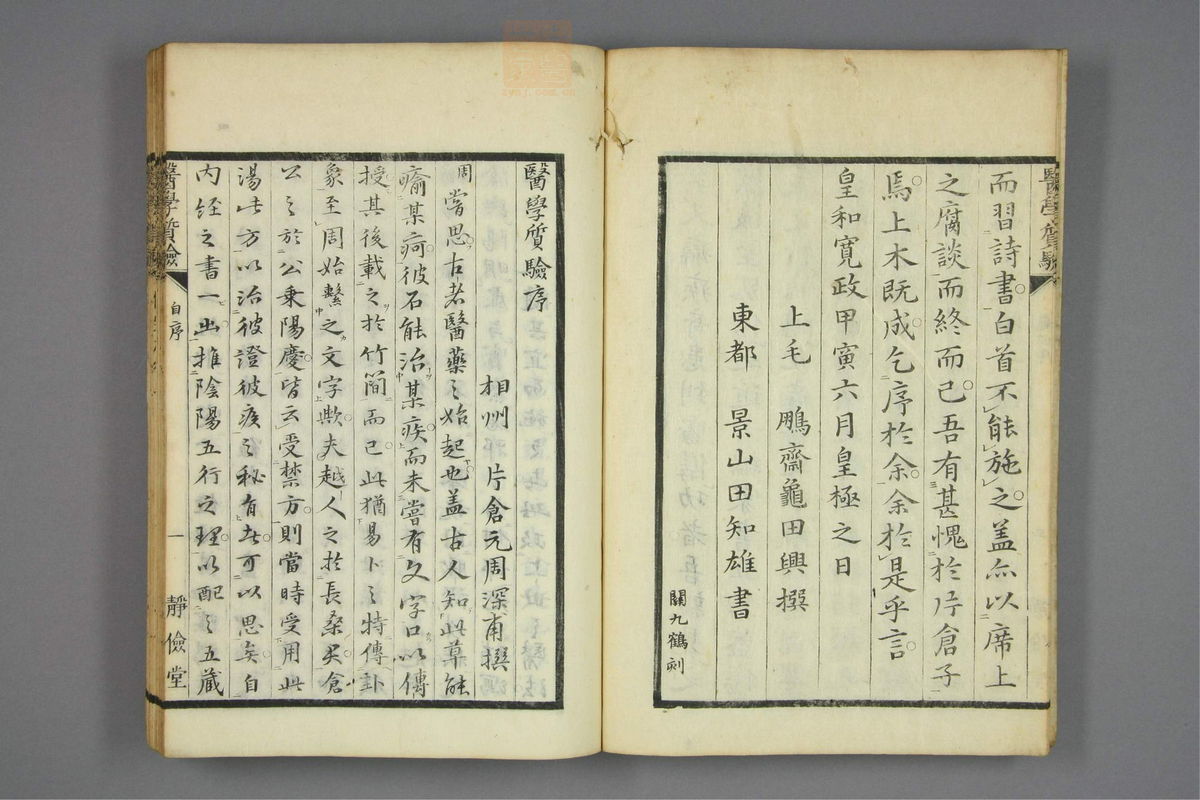 醫學質驗
而習詩書白首不能施之盖亦以席上
之腐談而終而已吾有甚愧於片倉子
焉上木既成乞序於余余於是乎言
皇和寛政甲寅六月皇極之日
上毛 鵬齋龜田興撰
東都 景山田知雄書
關九鶴刻
醫學質驗序
相州 片倉元周深甫撰
周嘗思古者醫藥之始起也盖古人知此草能
瘉某疴彼石能治某疾而未嘗有文字口以傳
授其後載之於竹簡而已此猶易卜之特傳卦
象至周始繫之文字歟夫越人之於長桑君倉
公之於公乗陽慶皆云受禁方則當時受用此
湯此方以治彼證彼疾之秘有者可以思矣自
内經之書一出推陰陽五行之理以配之五蔵
醫學質驗
自序
一
靜儉堂